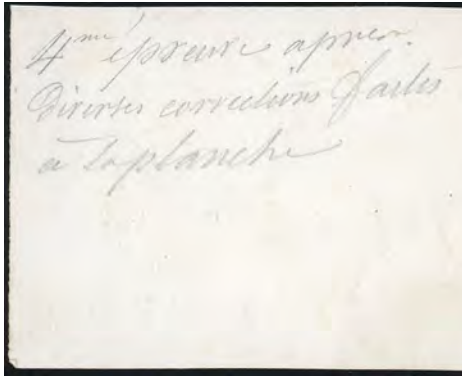 4me épreuve apres
diverses corrections faites
à la planche